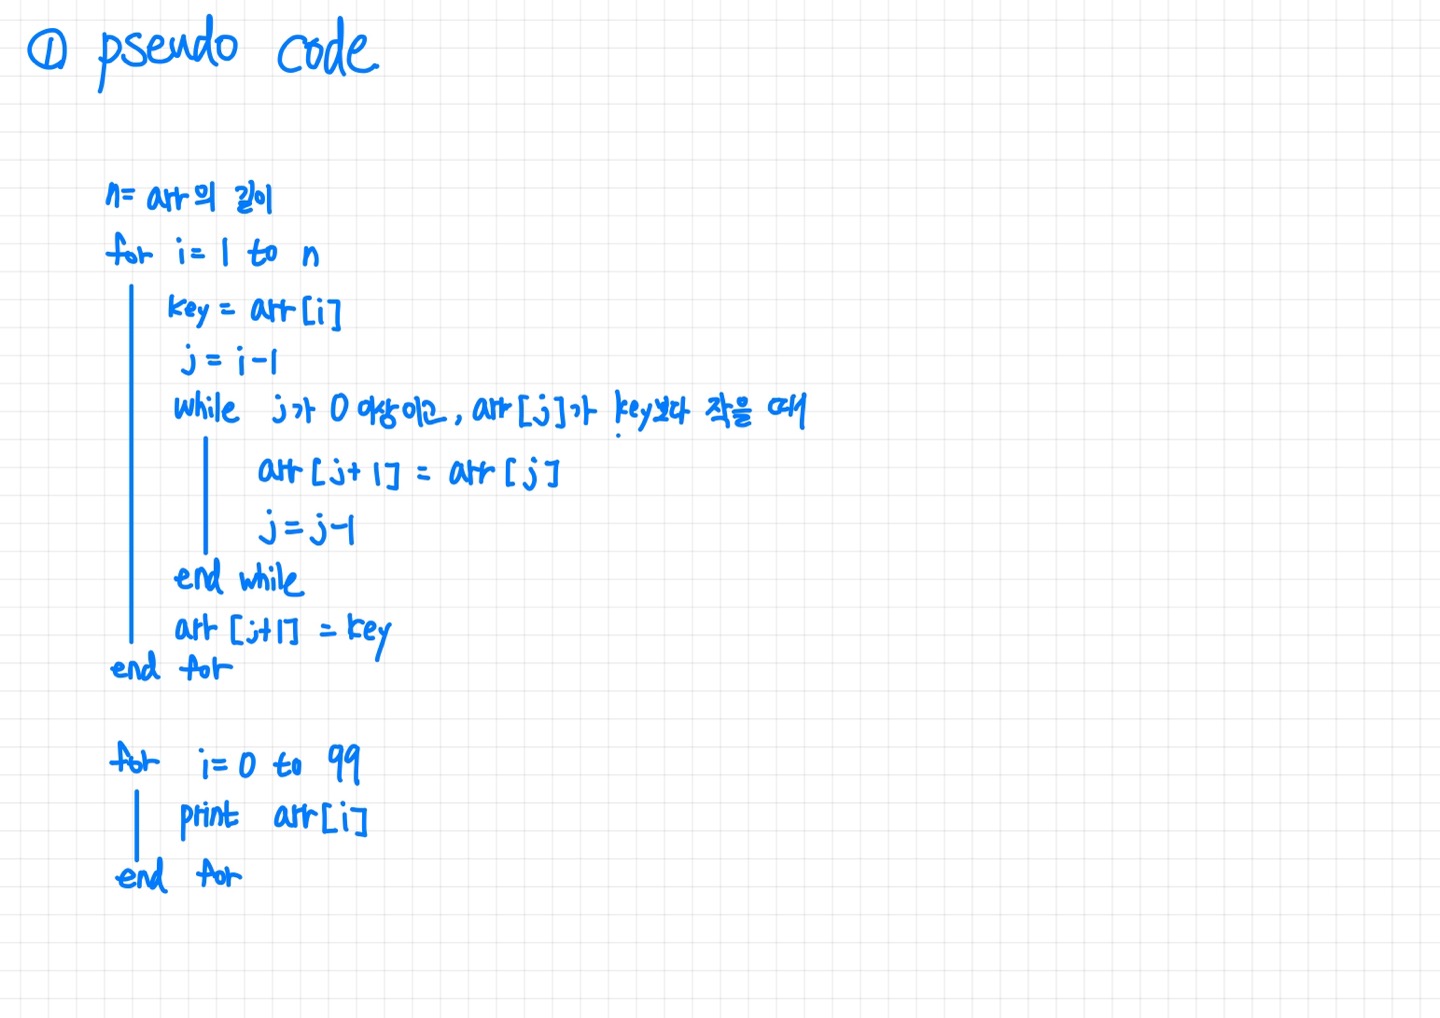 ① pseudo code
n= arr의 길이
for i= 1 to n
key = arr[i]
j = i-1
while j가 0 이상이고, arr[j]가 key보다 작을 때
arr[j+1] = arr[j]
j=j-1
end while
arr[j+1] = key
end for
for i=0 to 99
print arr[i]
end for